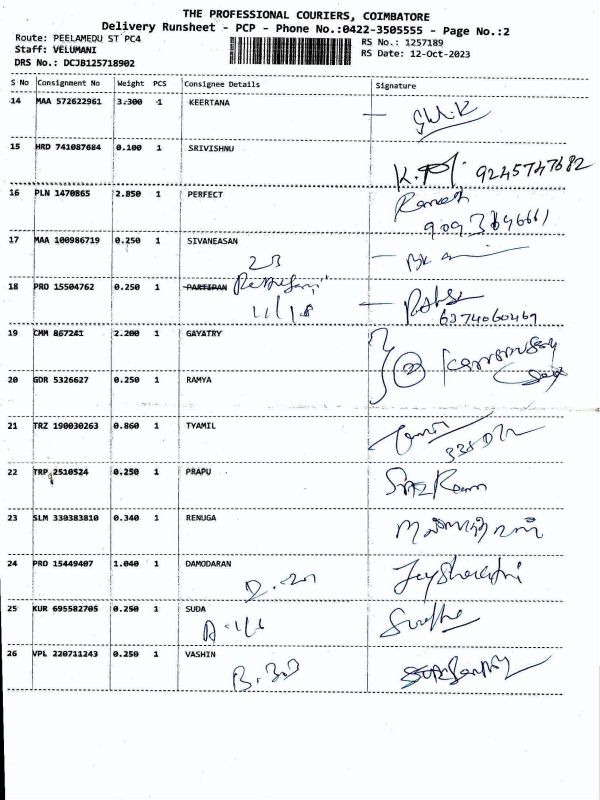 THE PROFESSIONAL COURIERS, COIMBATORE
Delivery Runsheet - PCP - Phone No.:0422-3505555 - Page No.:2
Route: PEELAMEDU ST PC4 RS No.: 1257189
Staff: VELUMANI RS Date: 12-Oct-2023
DRS No.: DCJB125718902
S No Consignment No Weight PCS Consignee Details Signature
14 MAA 572622961 3.300 1 KEERTANA
15 HRD 741087684 0.100 1 SRIVISHNU
9245747682
16 PLN 1470865 2.850 1 PERFECT Ramesh
17 MAA 100986719 0.250 1 SIVANEASAN
23
18 PRO 15504762 0.250 1 PARTIPAN
6374060469
19 CMM 867241 2.200 1 GAYATRY
20 GDR 5326627 0.250 1 RAMYA
21 TRZ 190030263 0.860 1 TYAMIL
22 TRP 2510524 0.250 1 PRAPU
23 SLM 330383810 0.340 1 RENUGA
24 PRO 15449407 1.040 1 DAMODARAN
25 KUR 695582705 0.250 1 SUDA
26 VPL 220711243 0.250 1 VASHIN
B.303